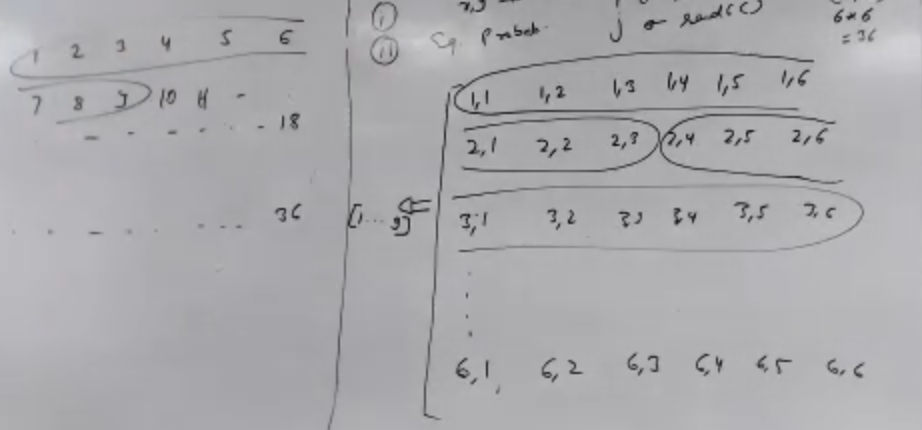 1 2 3 4 5 6
7 8 9 10 11 -
- - - - - - 18
. . - . . . . . 36
i
ii Eq. Probab.
j = rand6()
6*6
= 36
1,1 1,2 1,3 1,4 1,5 1,6
2,1 2,2 2,3 2,4 2,5 2,6
[1 ... 9] ⇐ 3,1 3,2 3,3 3,4 3,5 3,6
6,1 6,2 6,3 6,4 6,5 6,6